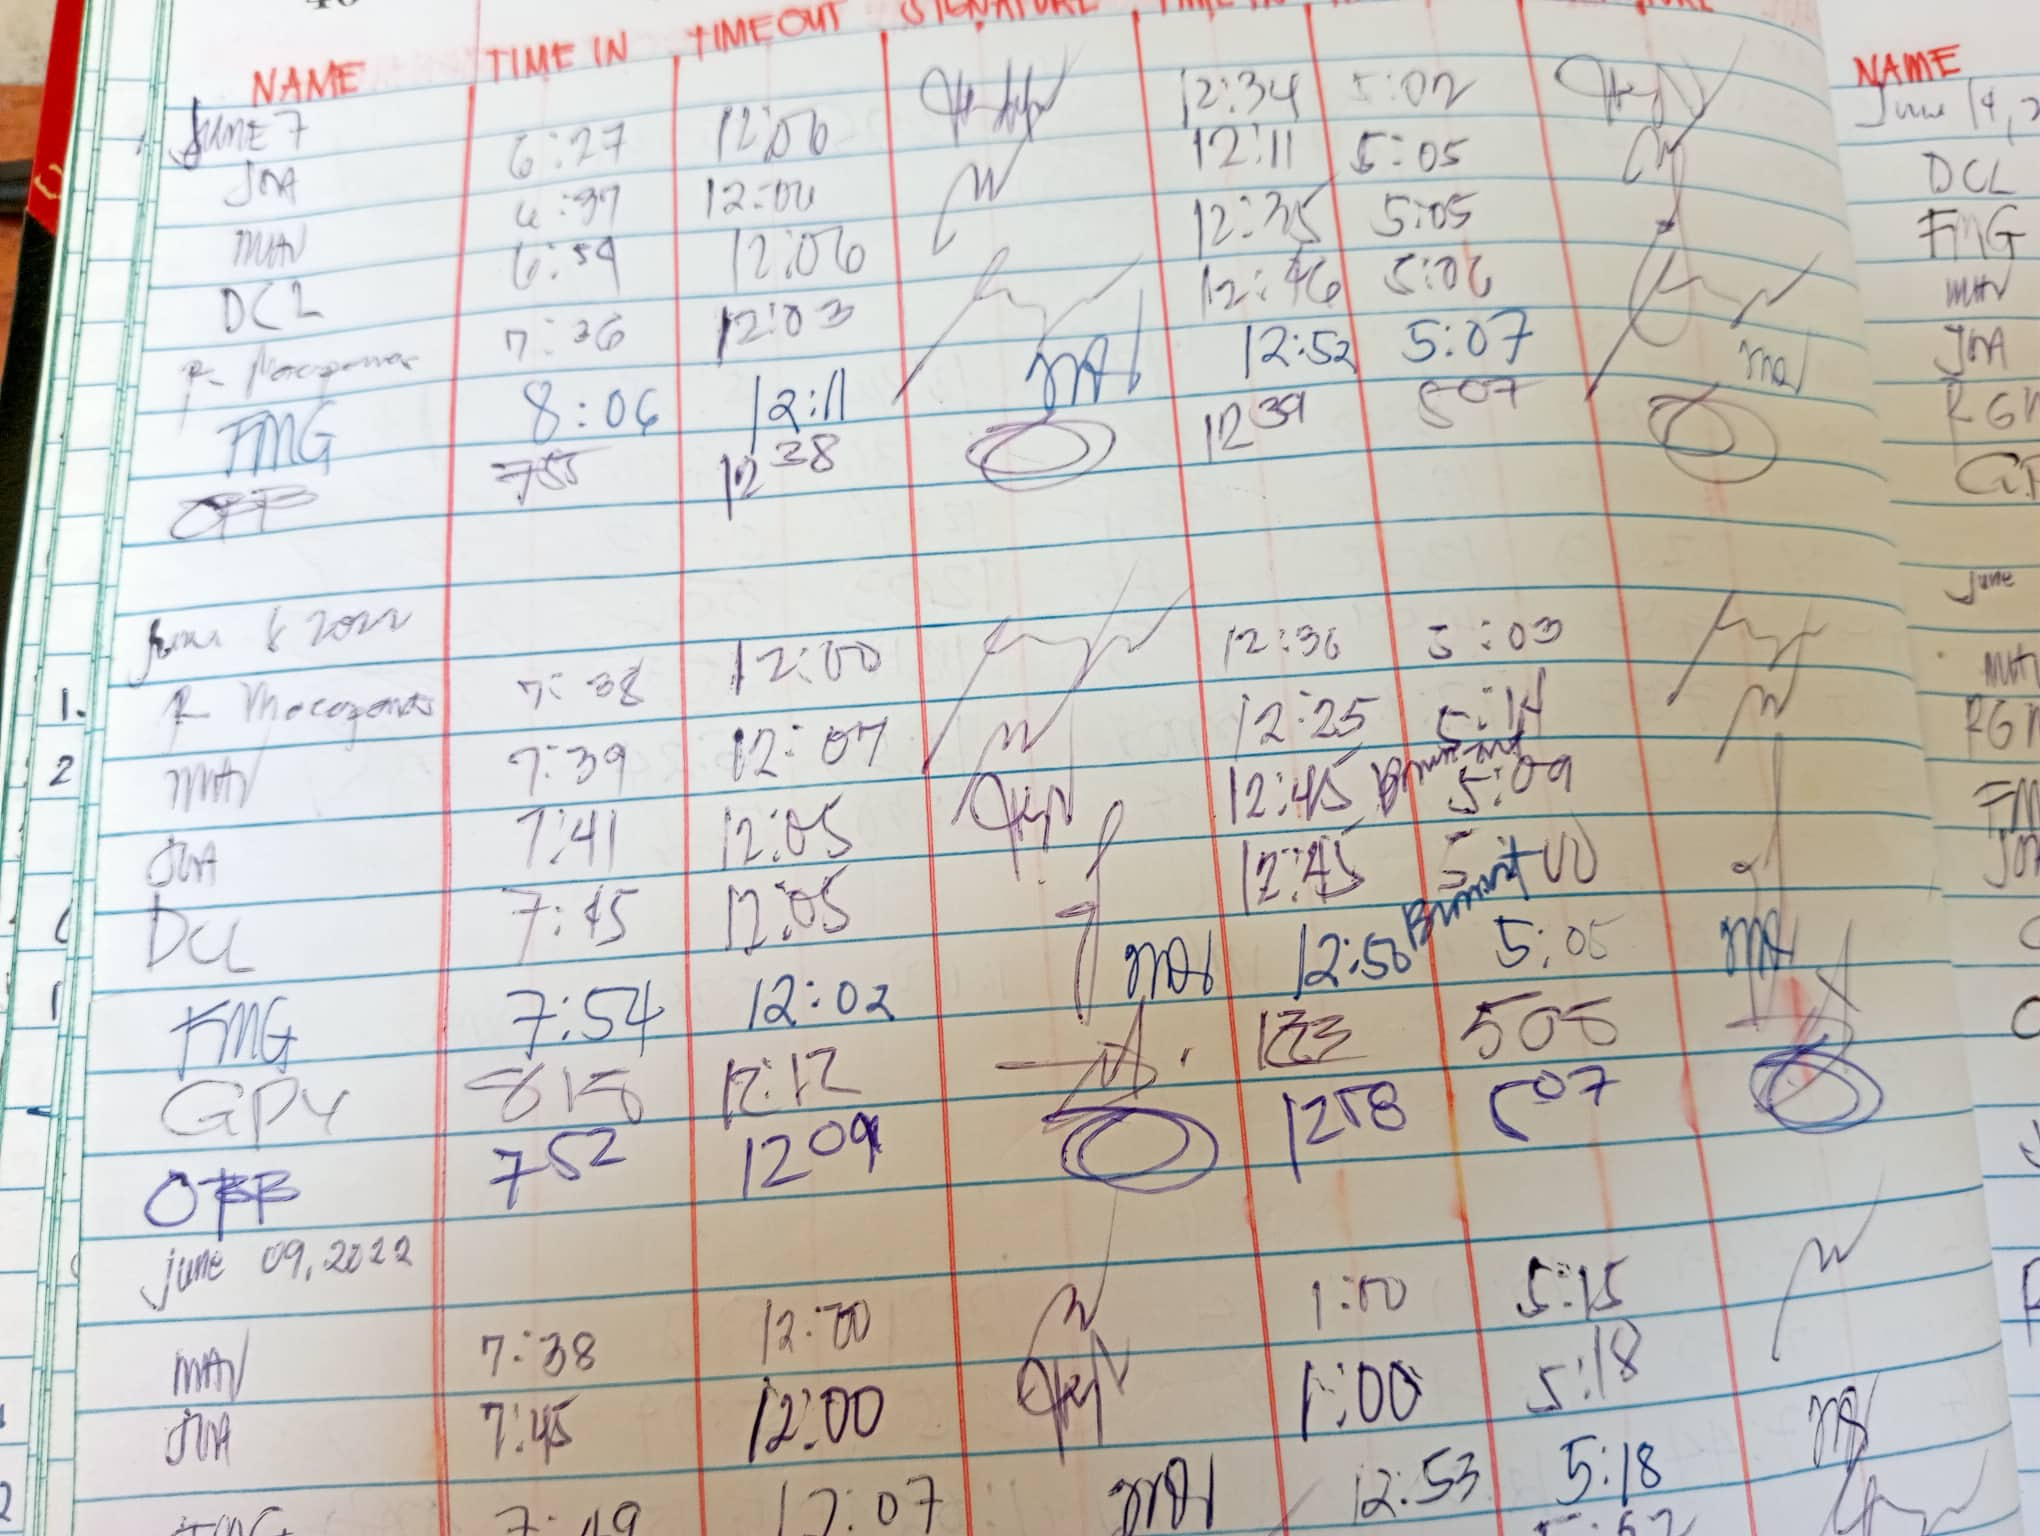 NAME TIME IN TIMEOUT SIGNATURE TIME IN
JUNE 7
JNA 6:27 12:06 12:34 5:02
MAV 6:37 12:06 12:11 5:05
DCL 6:59 12:06 12:35 5:05
7:36 12:03 12:46 5:06
FMG 8:06 12:11 12:52 5:07
OFF 755 1238 1239 507
June 8 2022
1. R 7:38 12:00 12:36 5:03
2 MAV 7:39 12:07 12:25 5:14
JNA 7:41 12:05 12:45 5:09
DCL 7:45 12:05 12:45 5
FMG 7:54 12:02 12:50 5:05
GPY 818 12:12 508
OFF 752 1209 1258 507
june 09, 2022
MAV 7:38 12:00 1:00 5:15
JNA 7:45 12:00 1:00 5:18
FMG 7:49 12:07 12:53 5:18
NAME
June 14, 2
DCL
FMG
MAV
JNA
RGM
GP
June
MAV
RGM
FM